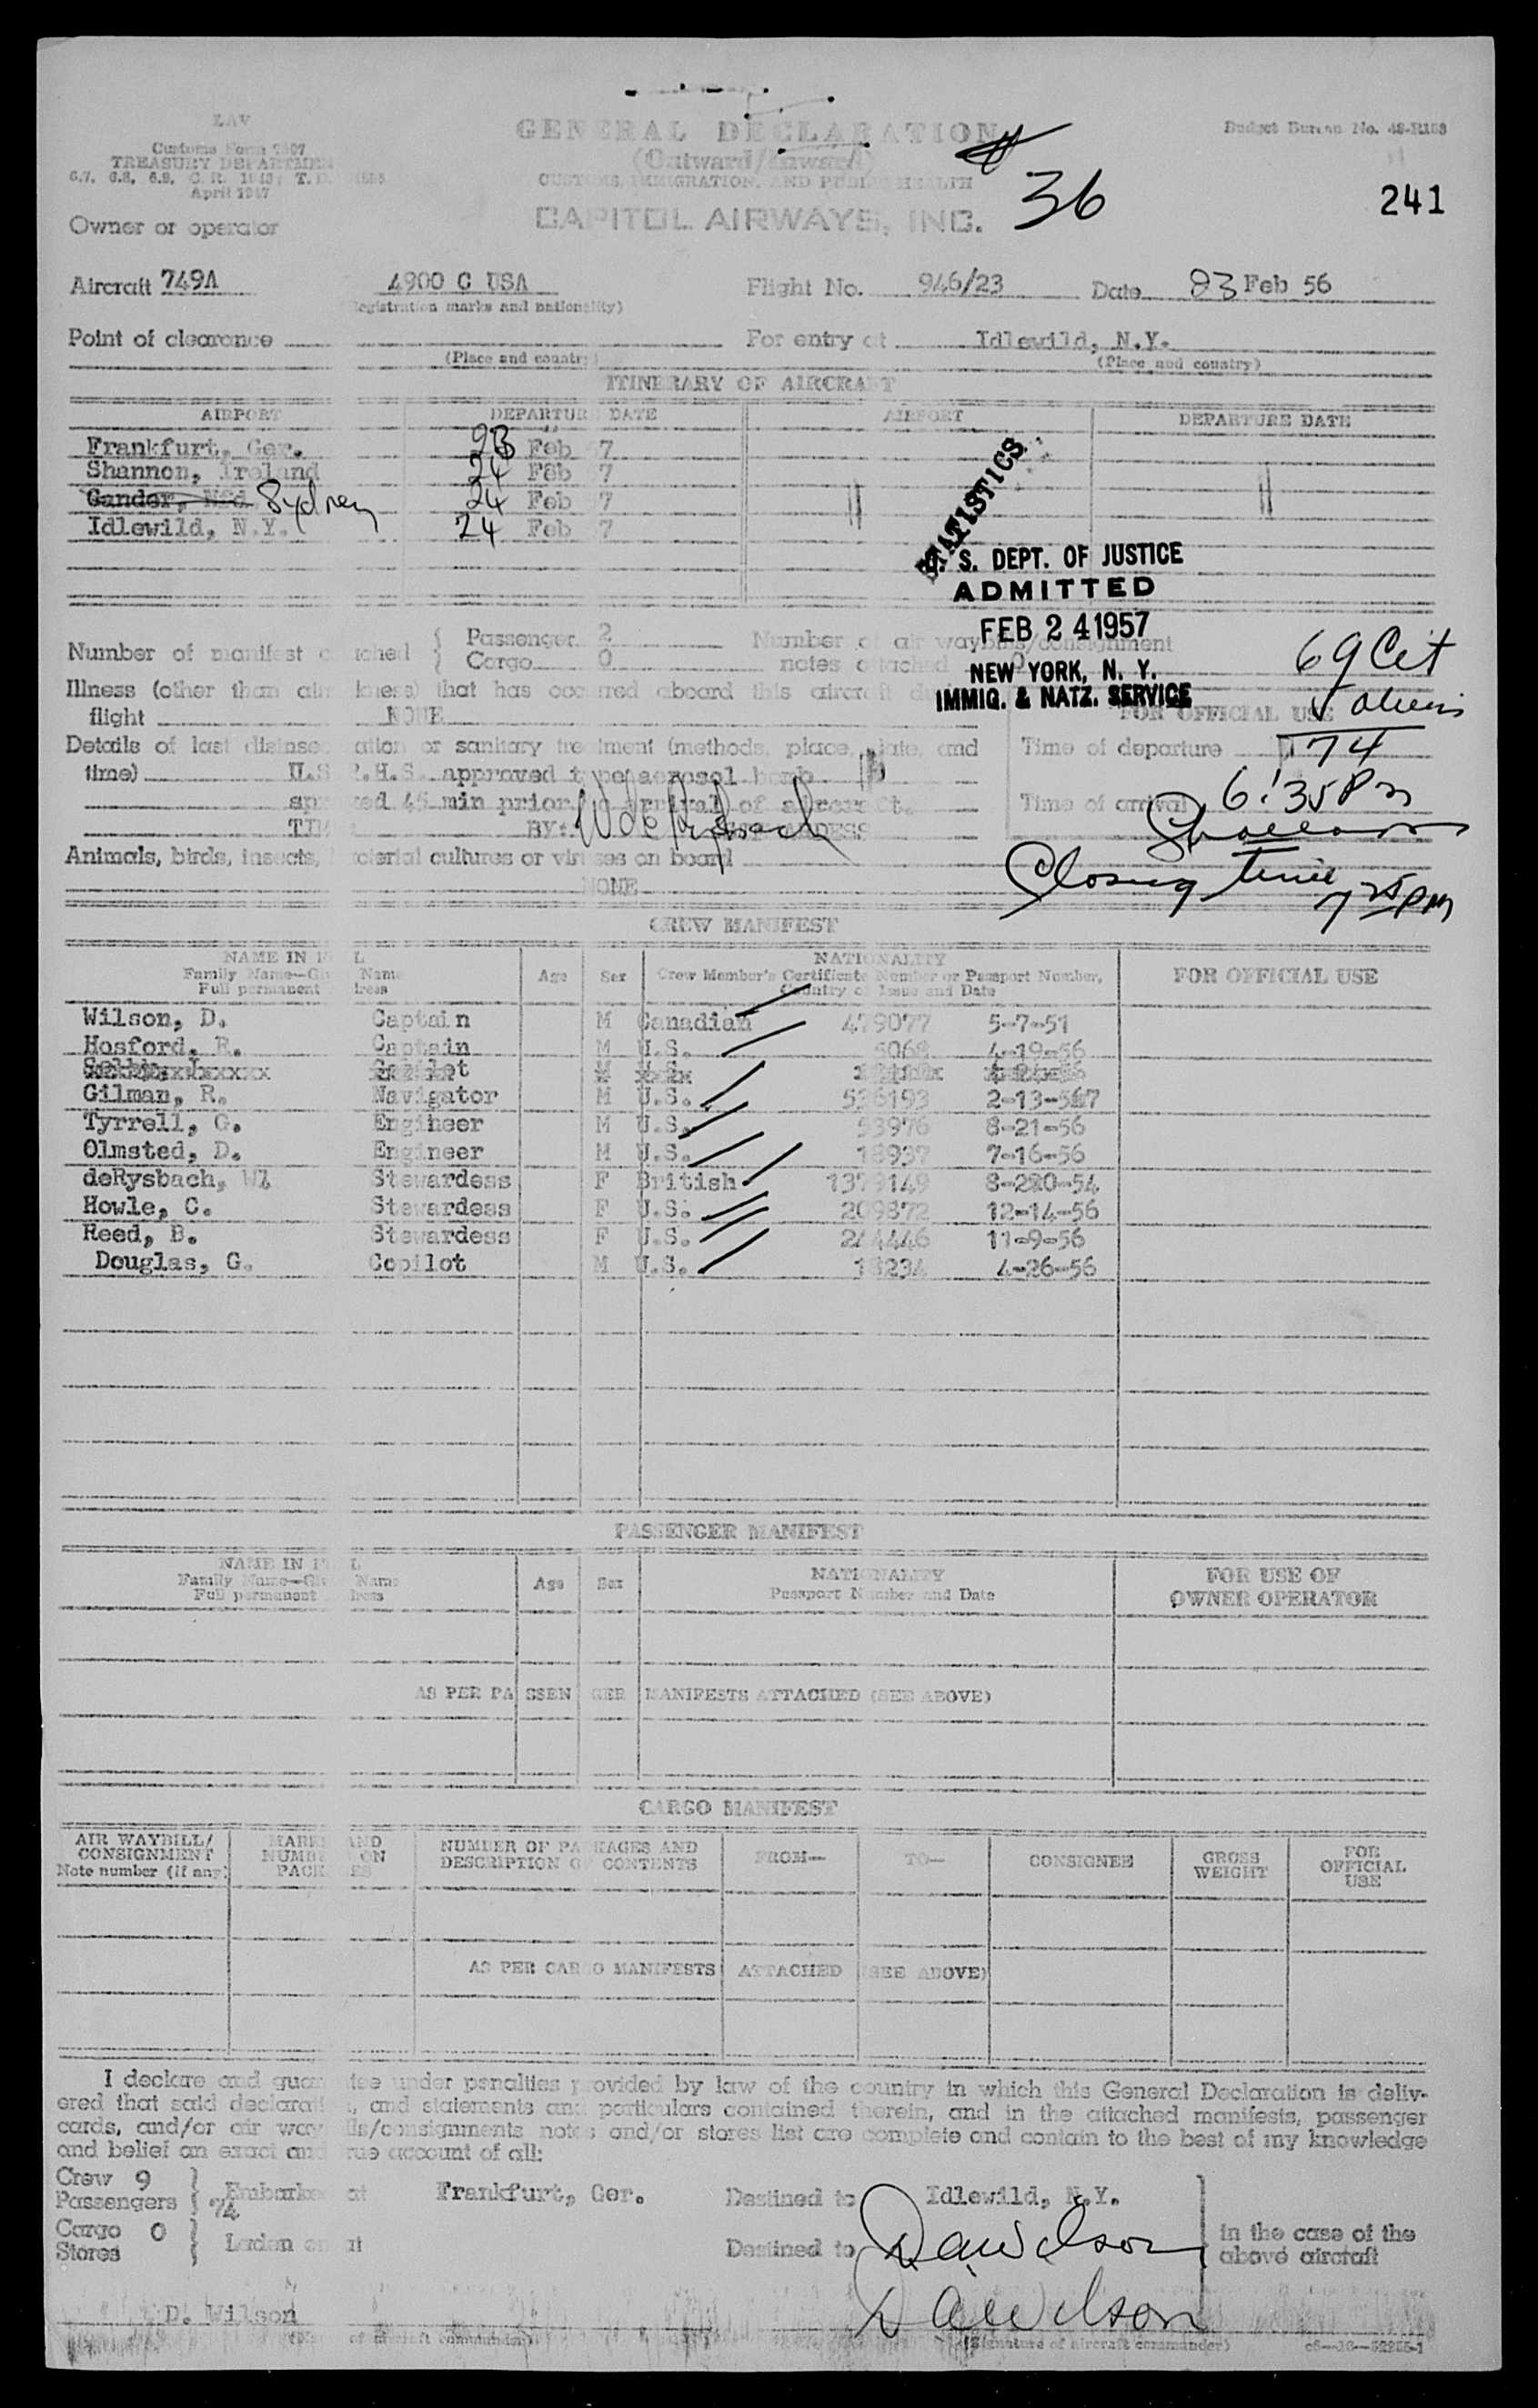 LAV
GENERAL DECLARATION
Budget Bureau No. 48-R103
(Outward/Inward)
Customs Form 7507
TREASURY DEPARTMEN
CUSTOMS, IMMIGRATION, AND PUBLIC HEALTH
# 36
241
6.7, 6.8, 6.9, C. R. 1943; T. D.
April 1947
Owner or operator
CAPITOL AIRWAYS, INC.
Aircraft 749A 4900 C USA Flight No. 946/23 Date 23 Feb 56
(Registration marks and nationality)
Point of clearance For entry at Idlewild, N.Y.
(Place and country) (Place and country)
ITINERARY OF AIRCRAFT
AIRPORT DEPARTURE DATE AIRPORT DEPARTURE DATE
Frankfurt, Ger. 23 Feb 7
Shannon, Ireland 24 Feb 7
Gander, Nfd Sydney 24 Feb 7
Idlewild, N.Y. 24 Feb 7
STATISTICS
U. S. DEPT. OF JUSTICE
ADMITTED
FEB 24 1957
NEW YORK, N. Y.
IMMIG. & NATZ. SERVICE
Number of manifest attached { Passenger 2 Number of air waybills/consignment
Cargo 0 notes attached 0
69 Cit
5 aliens
74
Illness (other than air sickness) that has occurred aboard this aircraft during
flight NONE
FOR OFFICIAL USE
Details of last disinsectization or sanitary treatment (methods, place, date, and Time of departure
time) U.S.P.H.S. approved type aerosol bomb
sprayed 45 min prior to arrival of aircraft. Time of arrival 6:35 PM
TIME BY: W deRysbach STEWARDESS
Animals, birds, insects, bacterial cultures or viruses on board
NONE
Closing time 7 25 PM
CREW MANIFEST
NAME IN FULL NATIONALITY
Family Name—Given Name Age Sex Crew Member's Certificate Number or Passport Number, FOR OFFICIAL USE
Full permanent address Country of Issue and Date
Wilson, D. Captain M Canadian 479077 5-7-51
Hosford, R. Captain M U.S. 5068 4-19-56
Gilman, R. Navigator M U.S. 536193 2-13-567
Tyrrell, G. Engineer M U.S. 53976 8-21-56
Olmsted, D. Engineer M U.S. 18937 7-16-56
deRysbach, W. Stewardess F British 1379149 8-220-54
Howle, C. Stewardess F U.S. 209872 12-14-56
Reed, B. Stewardess F U.S. 244446 11-9-56
Douglas, G. Copilot M U.S. 18234 4-26-56
PASSENGER MANIFEST
NAME IN FULL NATIONALITY FOR USE OF
Family Name—Given Name Age Sex Passport Number and Date OWNER OPERATOR
Full permanent address
AS PER PASSENGER MANIFESTS ATTACHED (SEE ABOVE)
CARGO MANIFEST
AIR WAYBILL/ CONSIGNMENT Note number (if any) MARKS AND NUMBERS ON PACKAGES NUMBER OF PACKAGES AND DESCRIPTION OF CONTENTS FROM— TO— CONSIGNEE GROSS WEIGHT FOR OFFICIAL USE
AS PER CARGO MANIFESTS ATTACHED (SEE ABOVE)
I declare and guarantee under penalties provided by law of the country in which this General Declaration is deliv-
ered that said declaration, and statements and particulars contained therein, and in the attached manifests, passenger
cards, and/or air waybills/consignments notes and/or stores list are complete and contain to the best of my knowledge
and belief an exact and true account of all:
Crew 9
Passengers 74 } Embarked at Frankfurt, Ger. Destined to Idlewild, N.Y.
Cargo 0
Stores } Laden on at Destined to in the case of the above aircraft
D A Wilson
D. Wilson
D A Wilson
(Signature of aircraft commander)